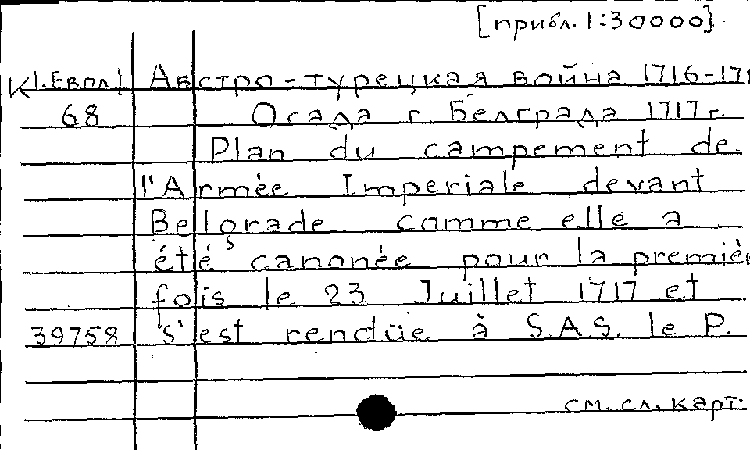 [прибл. 1:30000].
Австро-турецкая война 1716-171
68 Осада г. Белграда 1717 г.
Plan du campement de
l'Armée Imperiale devant
Belgrade comme elle a
été canonée pour la premièr
fois le 23 Juillet 1717 et
39758 s'est rendüe à S.A.S. le P.
см. сл. карт.